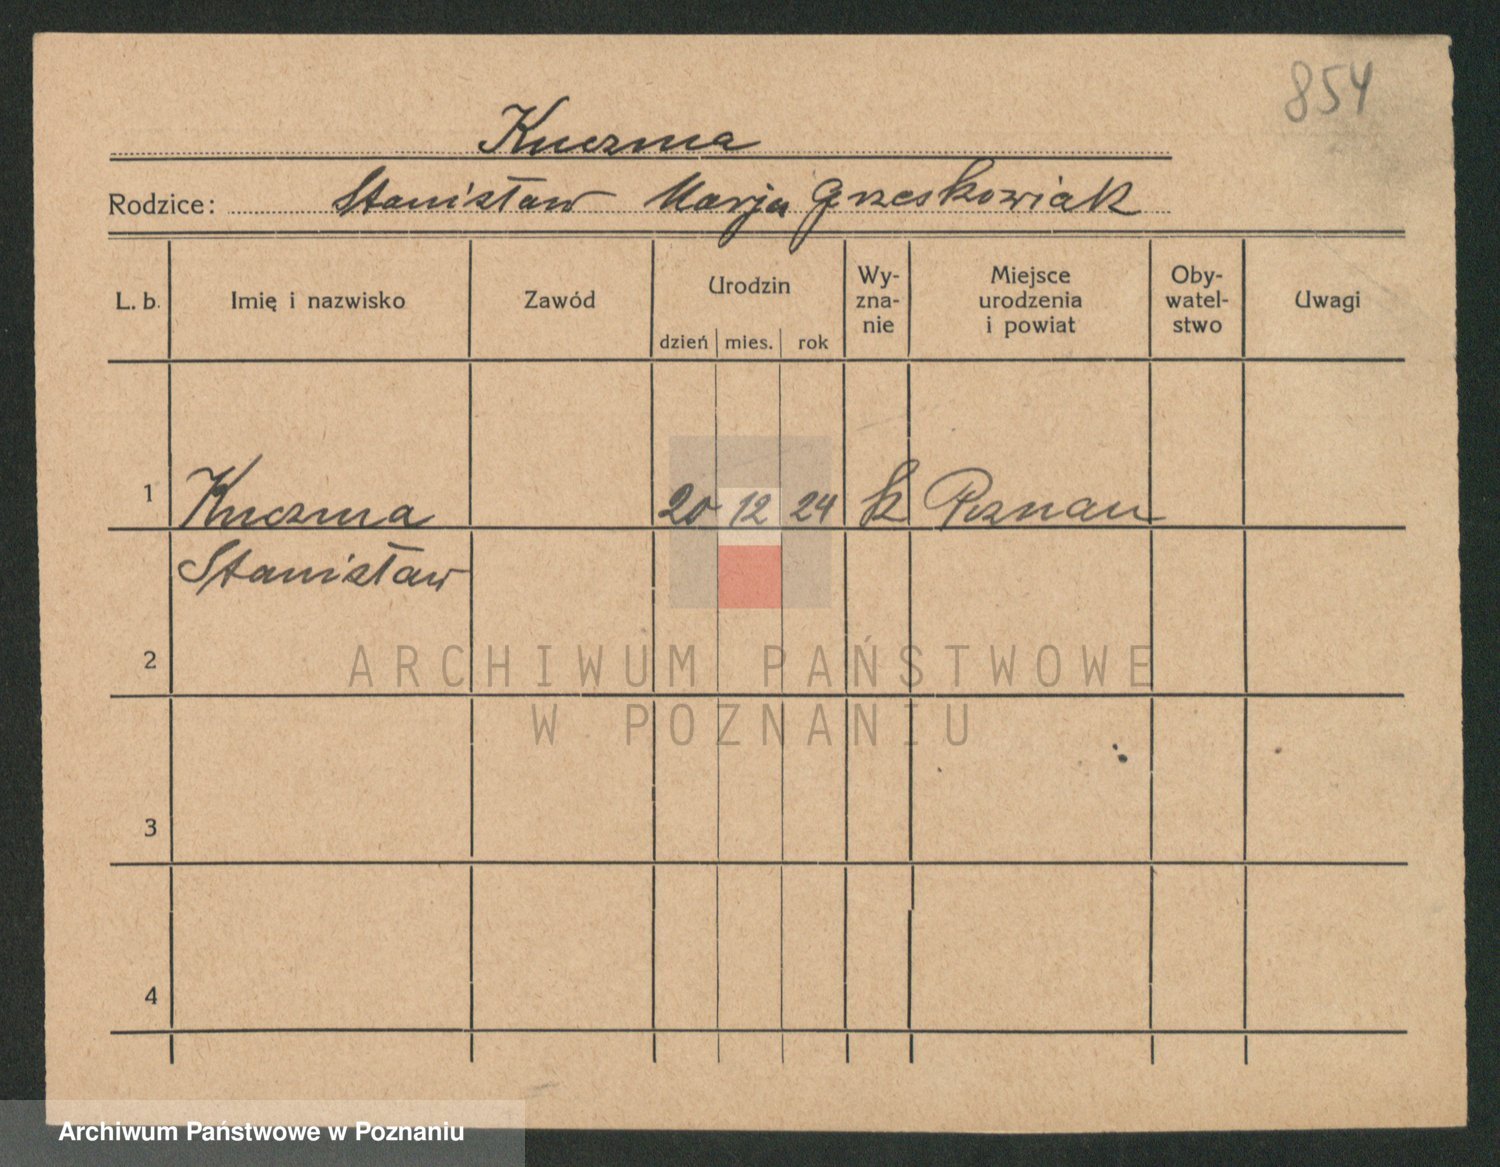 854
Kuczma
Rodzice: Stanisław Marja Grzeskowiak
L. b. Imię i nazwisko Zawód Urodzin Wy-zna-nie Miejsce urodzenia i powiat Oby-watel-stwo Uwagi
dzień mies. rok
1 Kuczma 20 12 24 k Poznan
Stanisław
2
ARCHIWUM PAŃSTWOWE
W POZNANIU
3
4
Archiwum Państwowe w Poznaniu